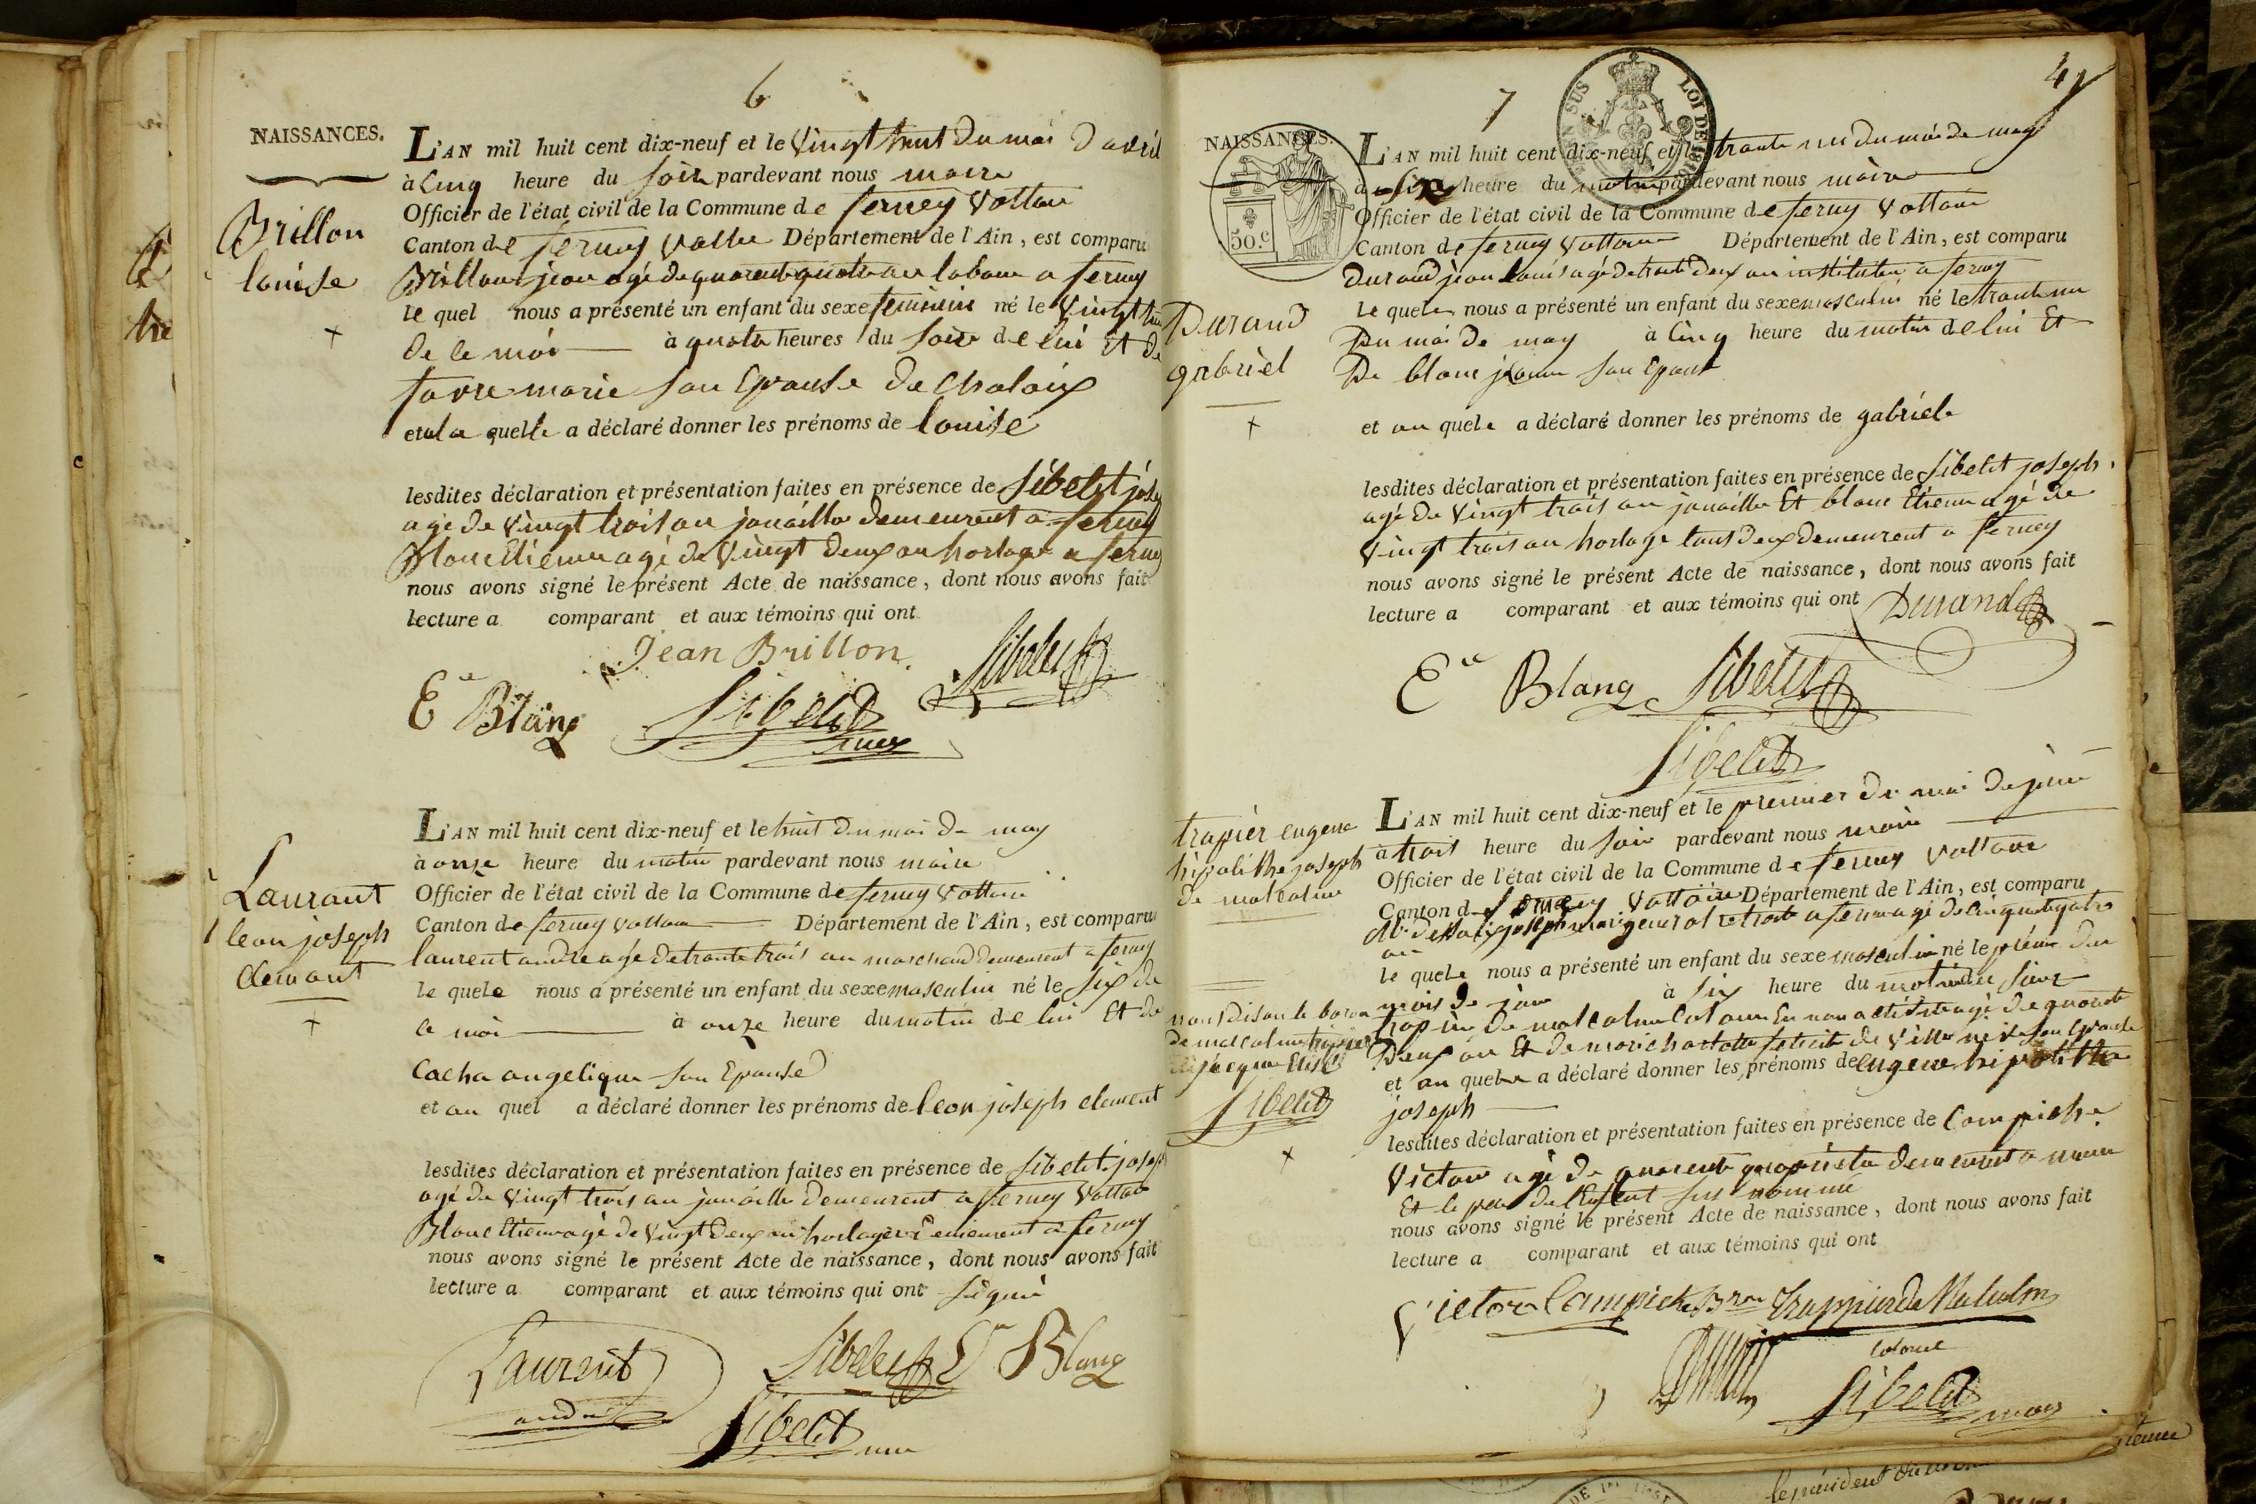 6
NAISSANCES.
L'AN mil huit cent dix-neuf et le Vingt huit du moi d avril
à Cinq heure du soir pardevant nous maire
Officier de l'état civil de la Commune de ferney Voltaire
Canton de ferney Département de l'Ain, est comparu
Brillon
louise
+
Brillon jean agé de quarente quatre an a ferney
le quel nous a présenté un enfant du sexe feminin né le Vingt
de ce moi à quatre heures du soir de lui Et de
favre marie son Epouse
et a la quelle a déclaré donner les prénoms de louise
lesdites déclaration et présentation faites en présence de Sibelit
agé de Vingt trois an demeurent a ferney
Blanc Etienne agé de Vingt deux an horloger a ferney
nous avons signé le présent Acte de naissance, dont nous avons fait
lecture a comparant et aux témoins qui ont
Jean Brillon
Sibelit
Ee Blanc
Sibelit
L'AN mil huit cent dix-neuf et le huit du moi de may
à onze heure du matin pardevant nous maire
Officier de l'état civil de la Commune de ferney Voltaire
Canton de ferney Département de l'Ain, est comparu
Laurant
leon joseph
clemant
+
laurent andre agé de trante trois an marchand demeurent a ferney
le quele nous a présenté un enfant du sexe masculin né le six de
ce moi à onze heure du matin de lui Et de
Cacha angelique son Epouse
et au quel a déclaré donner les prénoms de leon joseph clement
lesdites déclaration et présentation faites en présence de Sibelit joseph
agé de Vingt trois an demeurent a ferney Voltaire
Blanc Etienne agé de Vingt deux an horloger demeurent a ferney
nous avons signé le présent Acte de naissance, dont nous avons fait
lecture a comparant et aux témoins qui ont signé
Laurent
andre
Sibelit
Ee Blanc
Sibelit
7
4
NAISSANCES.
50.c
L'AN mil huit cent dix-neuf et le trante un du moi de may
à six heure du matin pardevant nous maire
Officier de l'état civil de la Commune de ferney Voltaire
Canton de ferney Voltaire Département de l'Ain, est comparu
Durand
gabriel
+
Durand jean louis agé de trante deux an instituteur a ferney
le quele nous a présenté un enfant du sexe masculin né le trante un
Du moi de may à Cinq heure du matin de lui Et
De blanc son Epouse
et au quele a déclaré donner les prénoms de gabriele
lesdites déclaration et présentation faites en présence de Sibelit joseph
agé de Vingt trois an Et blanc Etienne agé de
Vingt trois an horloge tous deux demeurent a ferney
nous avons signé le présent Acte de naissance, dont nous avons fait
lecture a comparant et aux témoins qui ont
Durand
Ee Blanc
Sibelit
Sibelit
L'AN mil huit cent dix-neuf et le premier du moi de juin
à trois heure du soir pardevant nous maire
Officier de l'état civil de la Commune de ferney Voltaire
Canton de Voltaire Département de l'Ain, est comparu
trapier eugene
hipolithe joseph
de malcolme
nous disons le baron
Sibelit
+
an
le quele nous a présenté un enfant du sexe masculin né le premier du
mois de juin à six heure du
trapier de malcolme agé de quarente
Deux an Et de marie charlotte son Epouse
et au quele a déclaré donner les prénoms de eugene hipolithe
joseph
lesdites déclaration et présentation faites en présence de Campiche
Victor agé de quarente demeurent a
Et le pere de l'enfent sus nommé
nous avons signé le présent Acte de naissance, dont nous avons fait
lecture a comparant et aux témoins qui ont
Victor Campiche
Bron Trappier de Malcolm
Colonel
Sibelit
maire